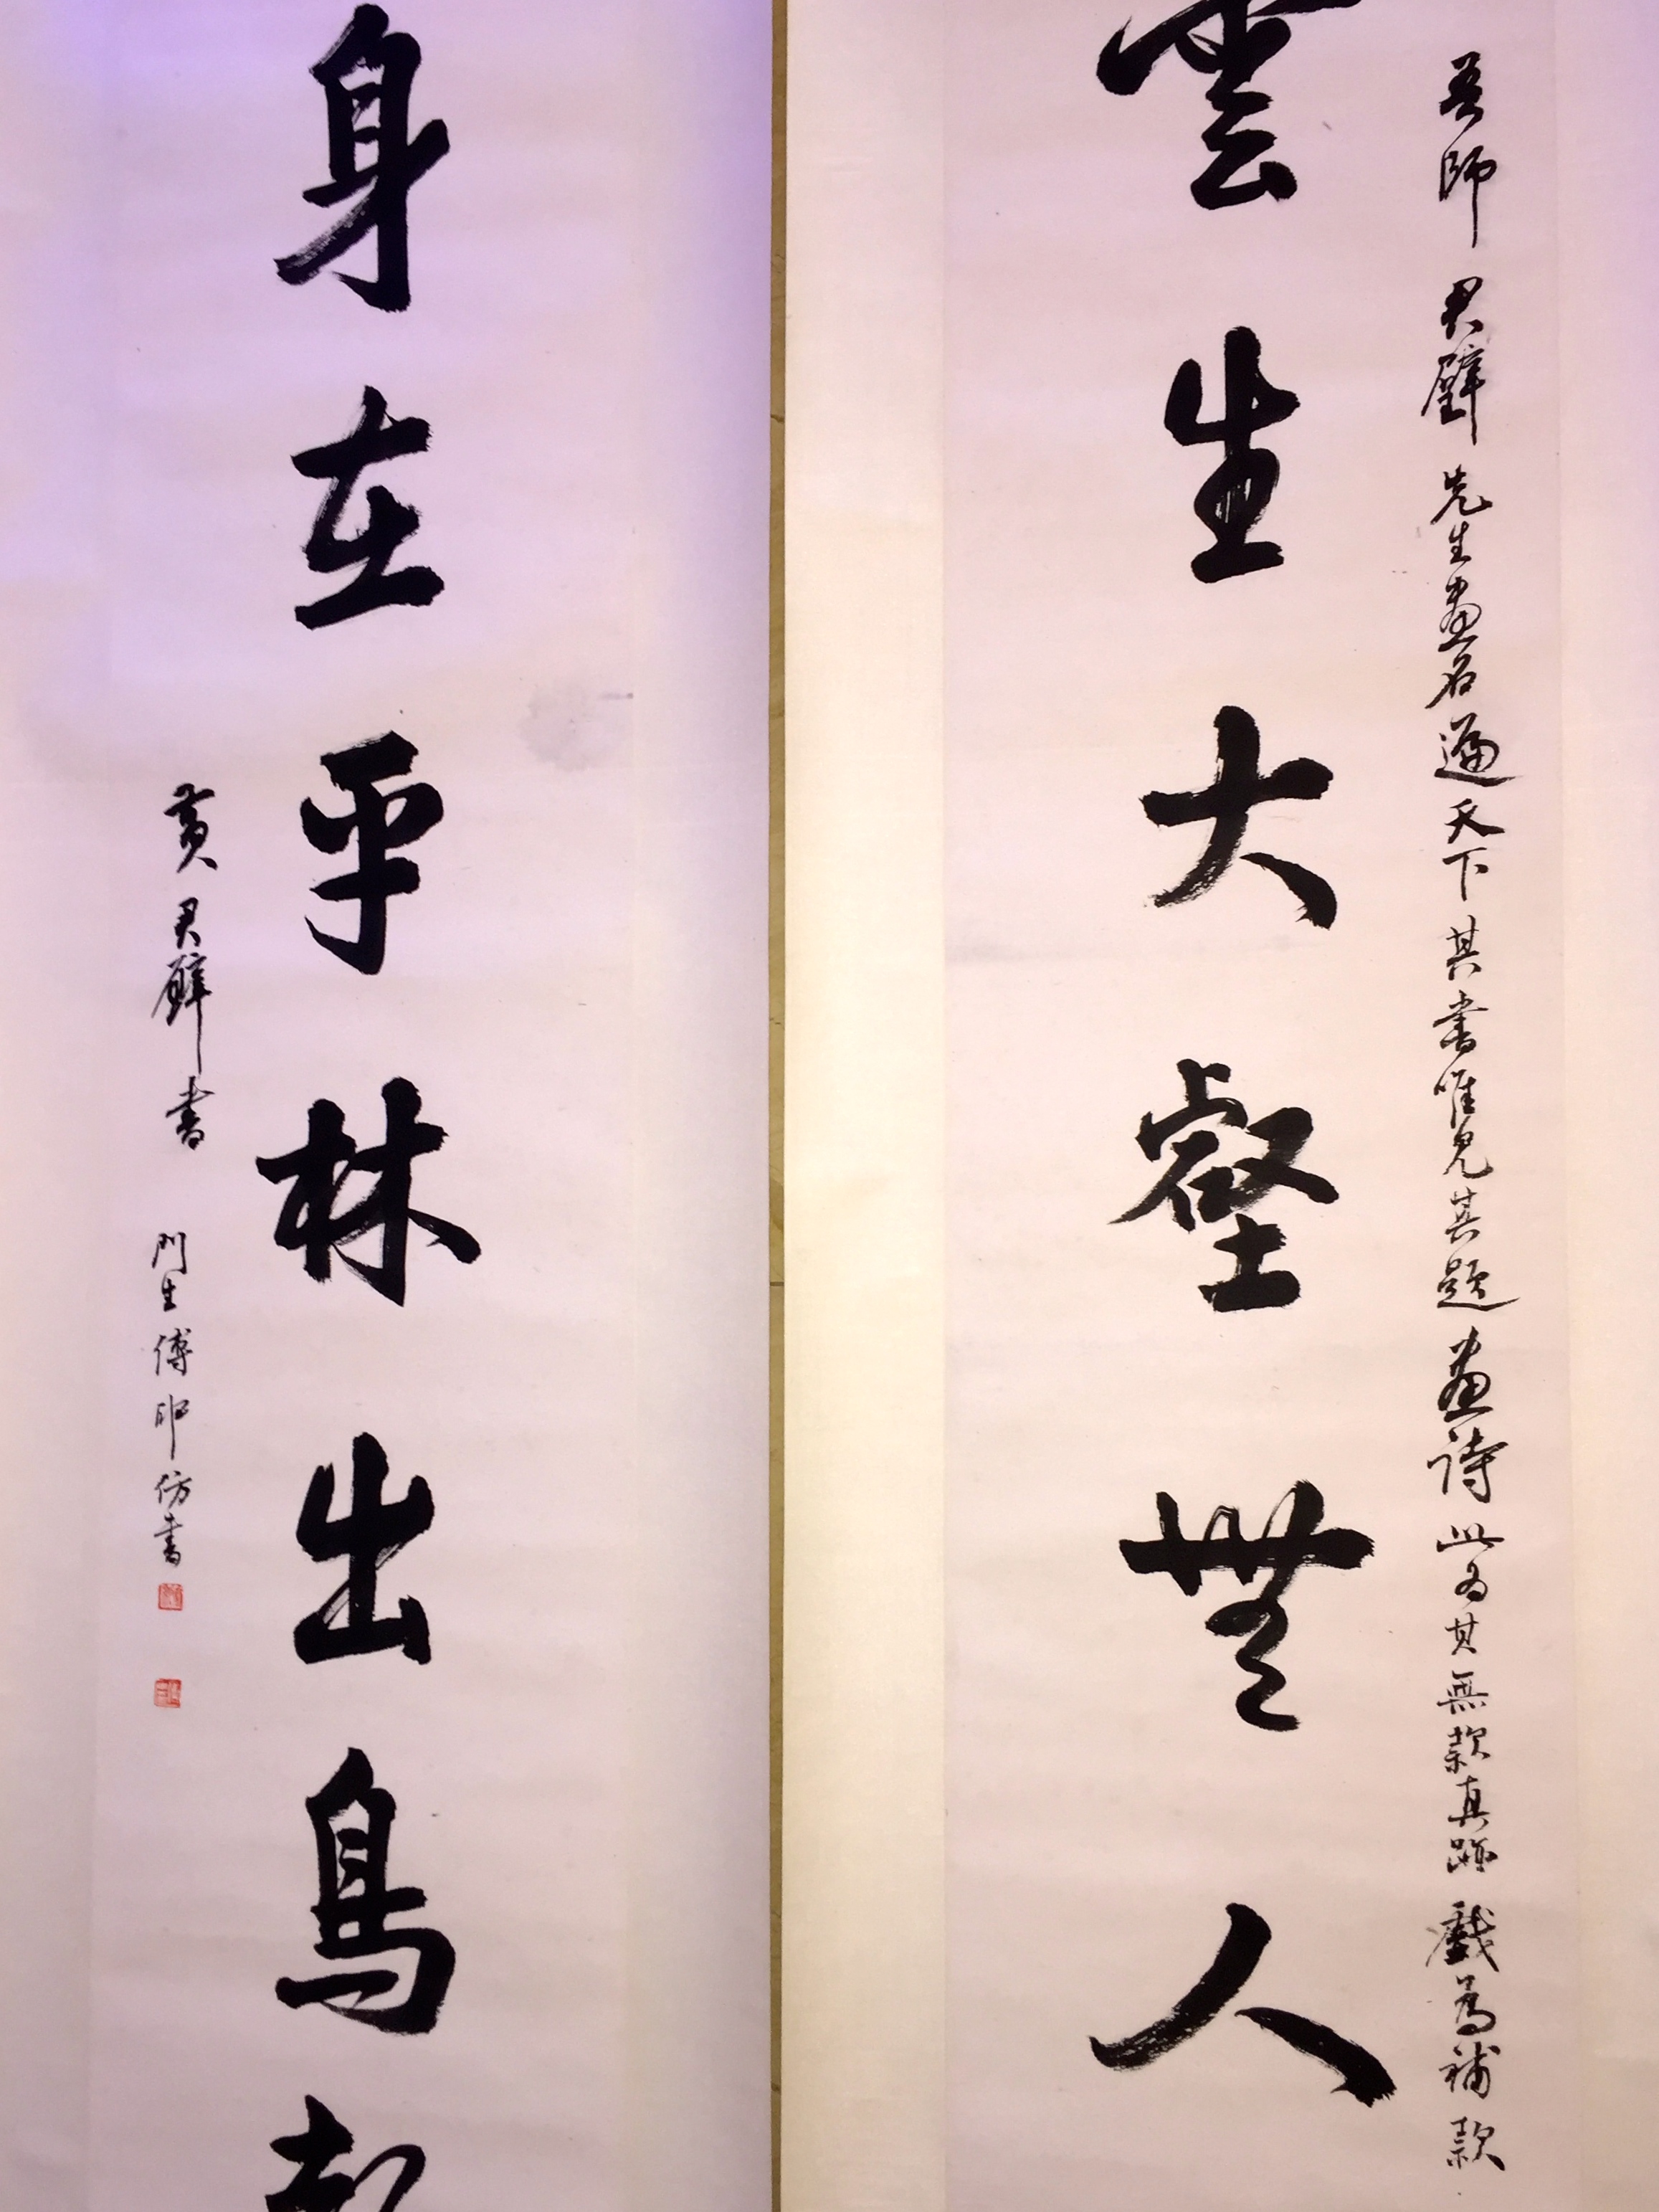 吾師君璧先生畫名遍天下其書唯見其題畫詩此為其無款真跡戲為補款
雲生大壑無人
身在平林出鳥
黃君璧書 門生傅申仿書